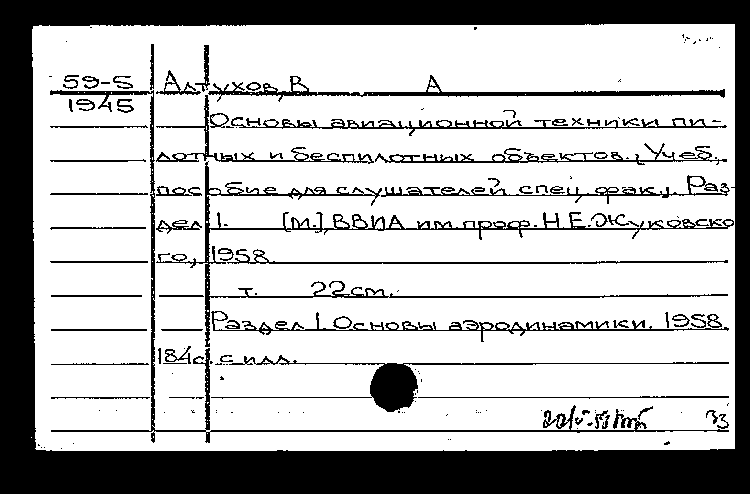 59-5 Алтухов, В А
1945
Основы авиационной техники пи-
лотных и беспилотных объектов. [Учеб.
пособие для слушателей спец. фак.]. Раз-
дел 1. [М.], ВВИА им. проф. Н.Е. Жуковско-
го, 1958.
т. 22 см.
Раздел 1. Основы аэродинамики. 1958.
184 с. с илл.
33